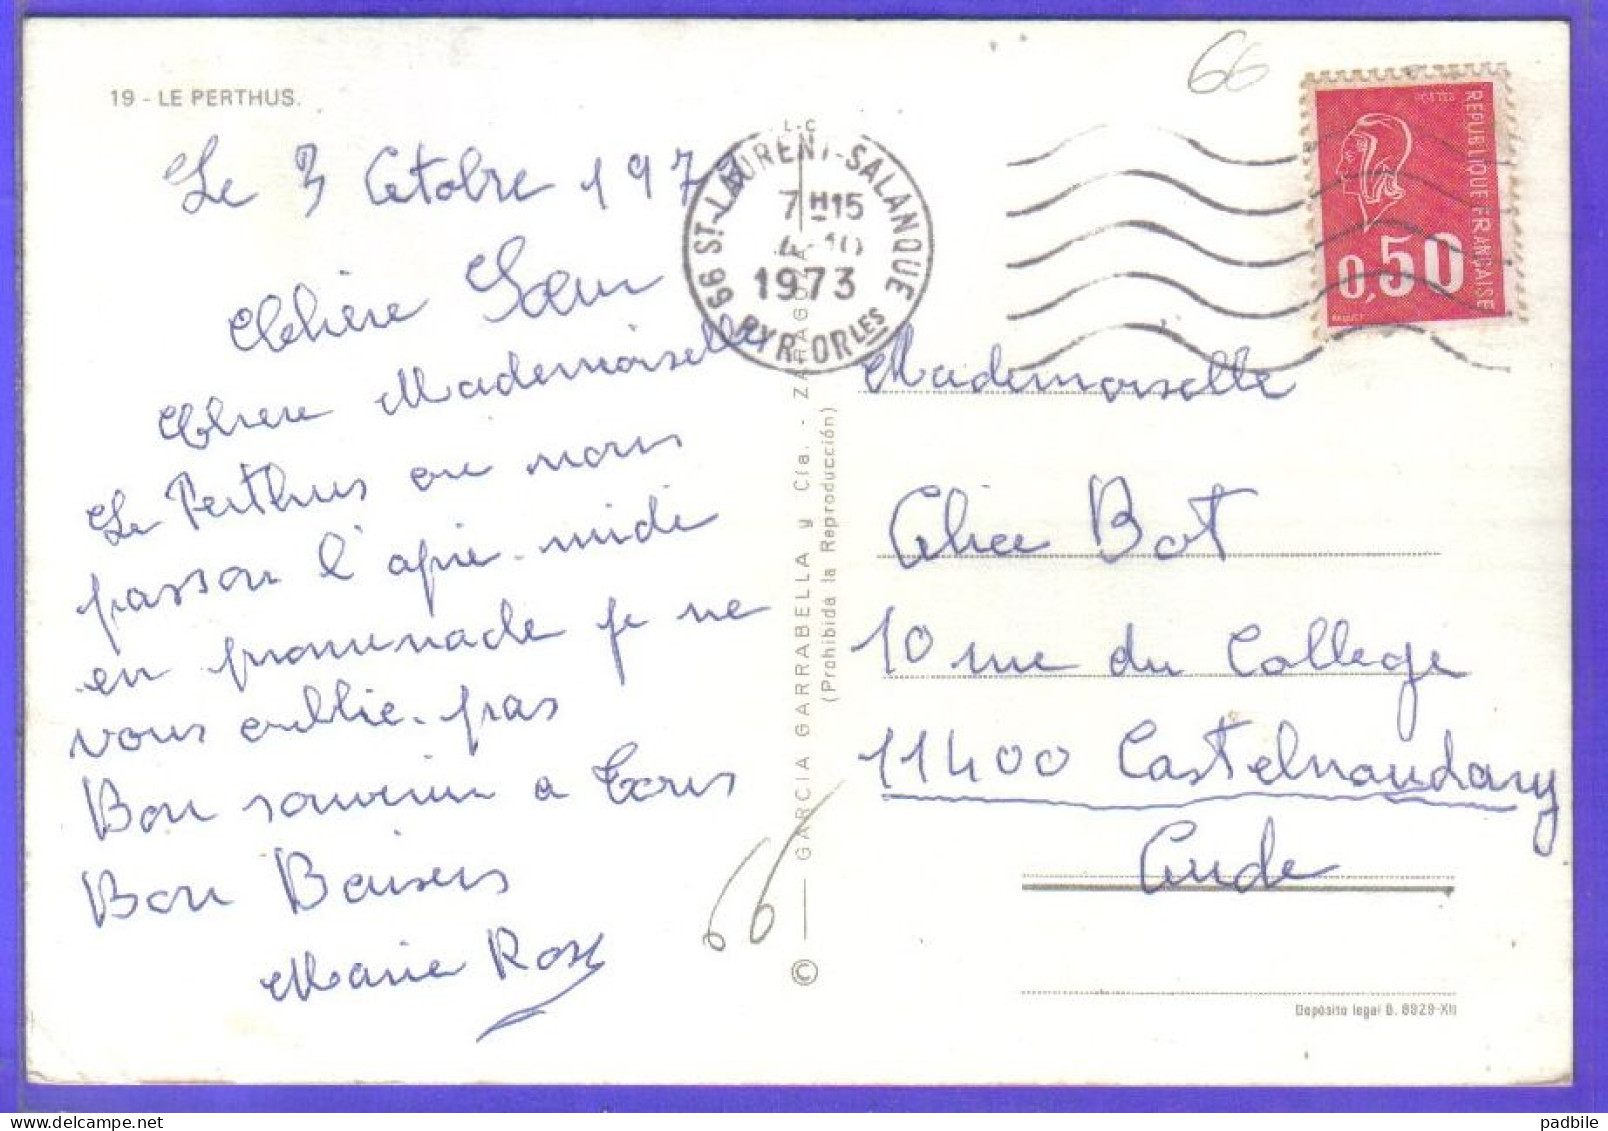 19 - LE PERTHUS.
Le 3 Octobre 1973
Chère Sœur
Chere Mademoiselle
Le Perthus ou nous
passon l'aprie-midi
en promenade je ne
vous oublie pas
Bon souvenir a tous
Bon Baisers
Marie Rose
66 ST-LAURENT-SALANQUE
7H15
4-10
1973
PYR-ORLES
L.C
GARCIA GARRABELLA y Cía. - ZARAGOZA
(Prohibida la Reproducción)
©
66
66
REPUBLIQUE FRANÇAISE
POSTES
0,50
Mademoiselle
Alice Bot
10 rue du College
11400 Castelnaudary
Aude
Depósito legal B. 8929-XII
padbile